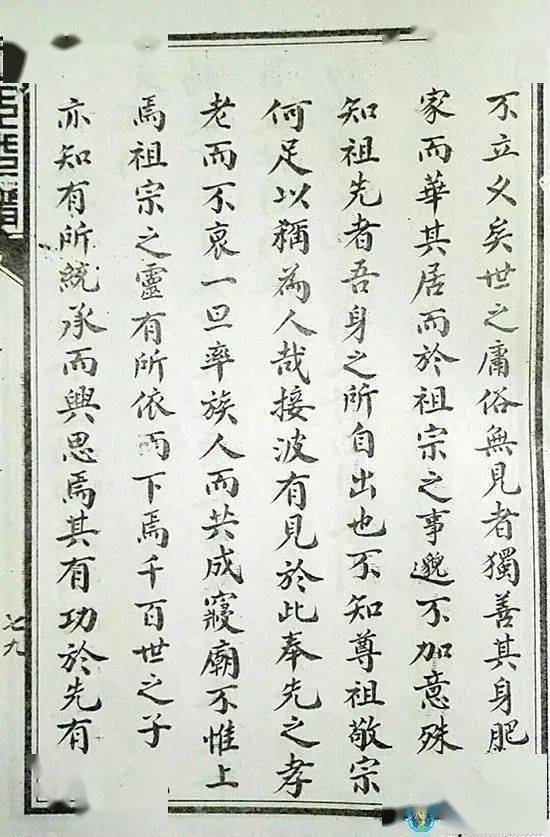 不立义矣世之庸俗無見者獨善其身肥
家而華其居而於祖宗之事邈不加意殊
知祖先者吾身之所自出也不知尊祖敬宗
何足以稱為人哉接波有見於此奉先之孝
老而不衰一旦率族人而共成寢廟不惟上
焉祖宗之靈有所依而下焉千百世之子
亦知有所統承而興思焉其有功於先有
七九